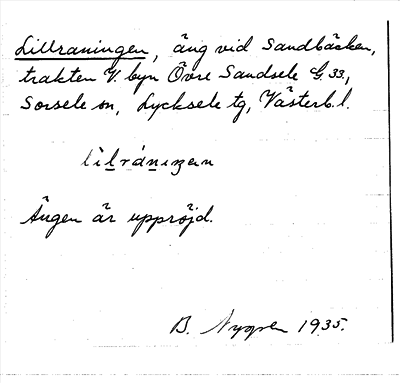 Lillraningen, äng vid Sandbäcken,
trakten V. byn Övre Sandsele G 33,
Sorsele sn, Lycksele tg, Västerb. l.
lìlránıŋan
Ängen är uppröjd.
B. Nygren 1935.